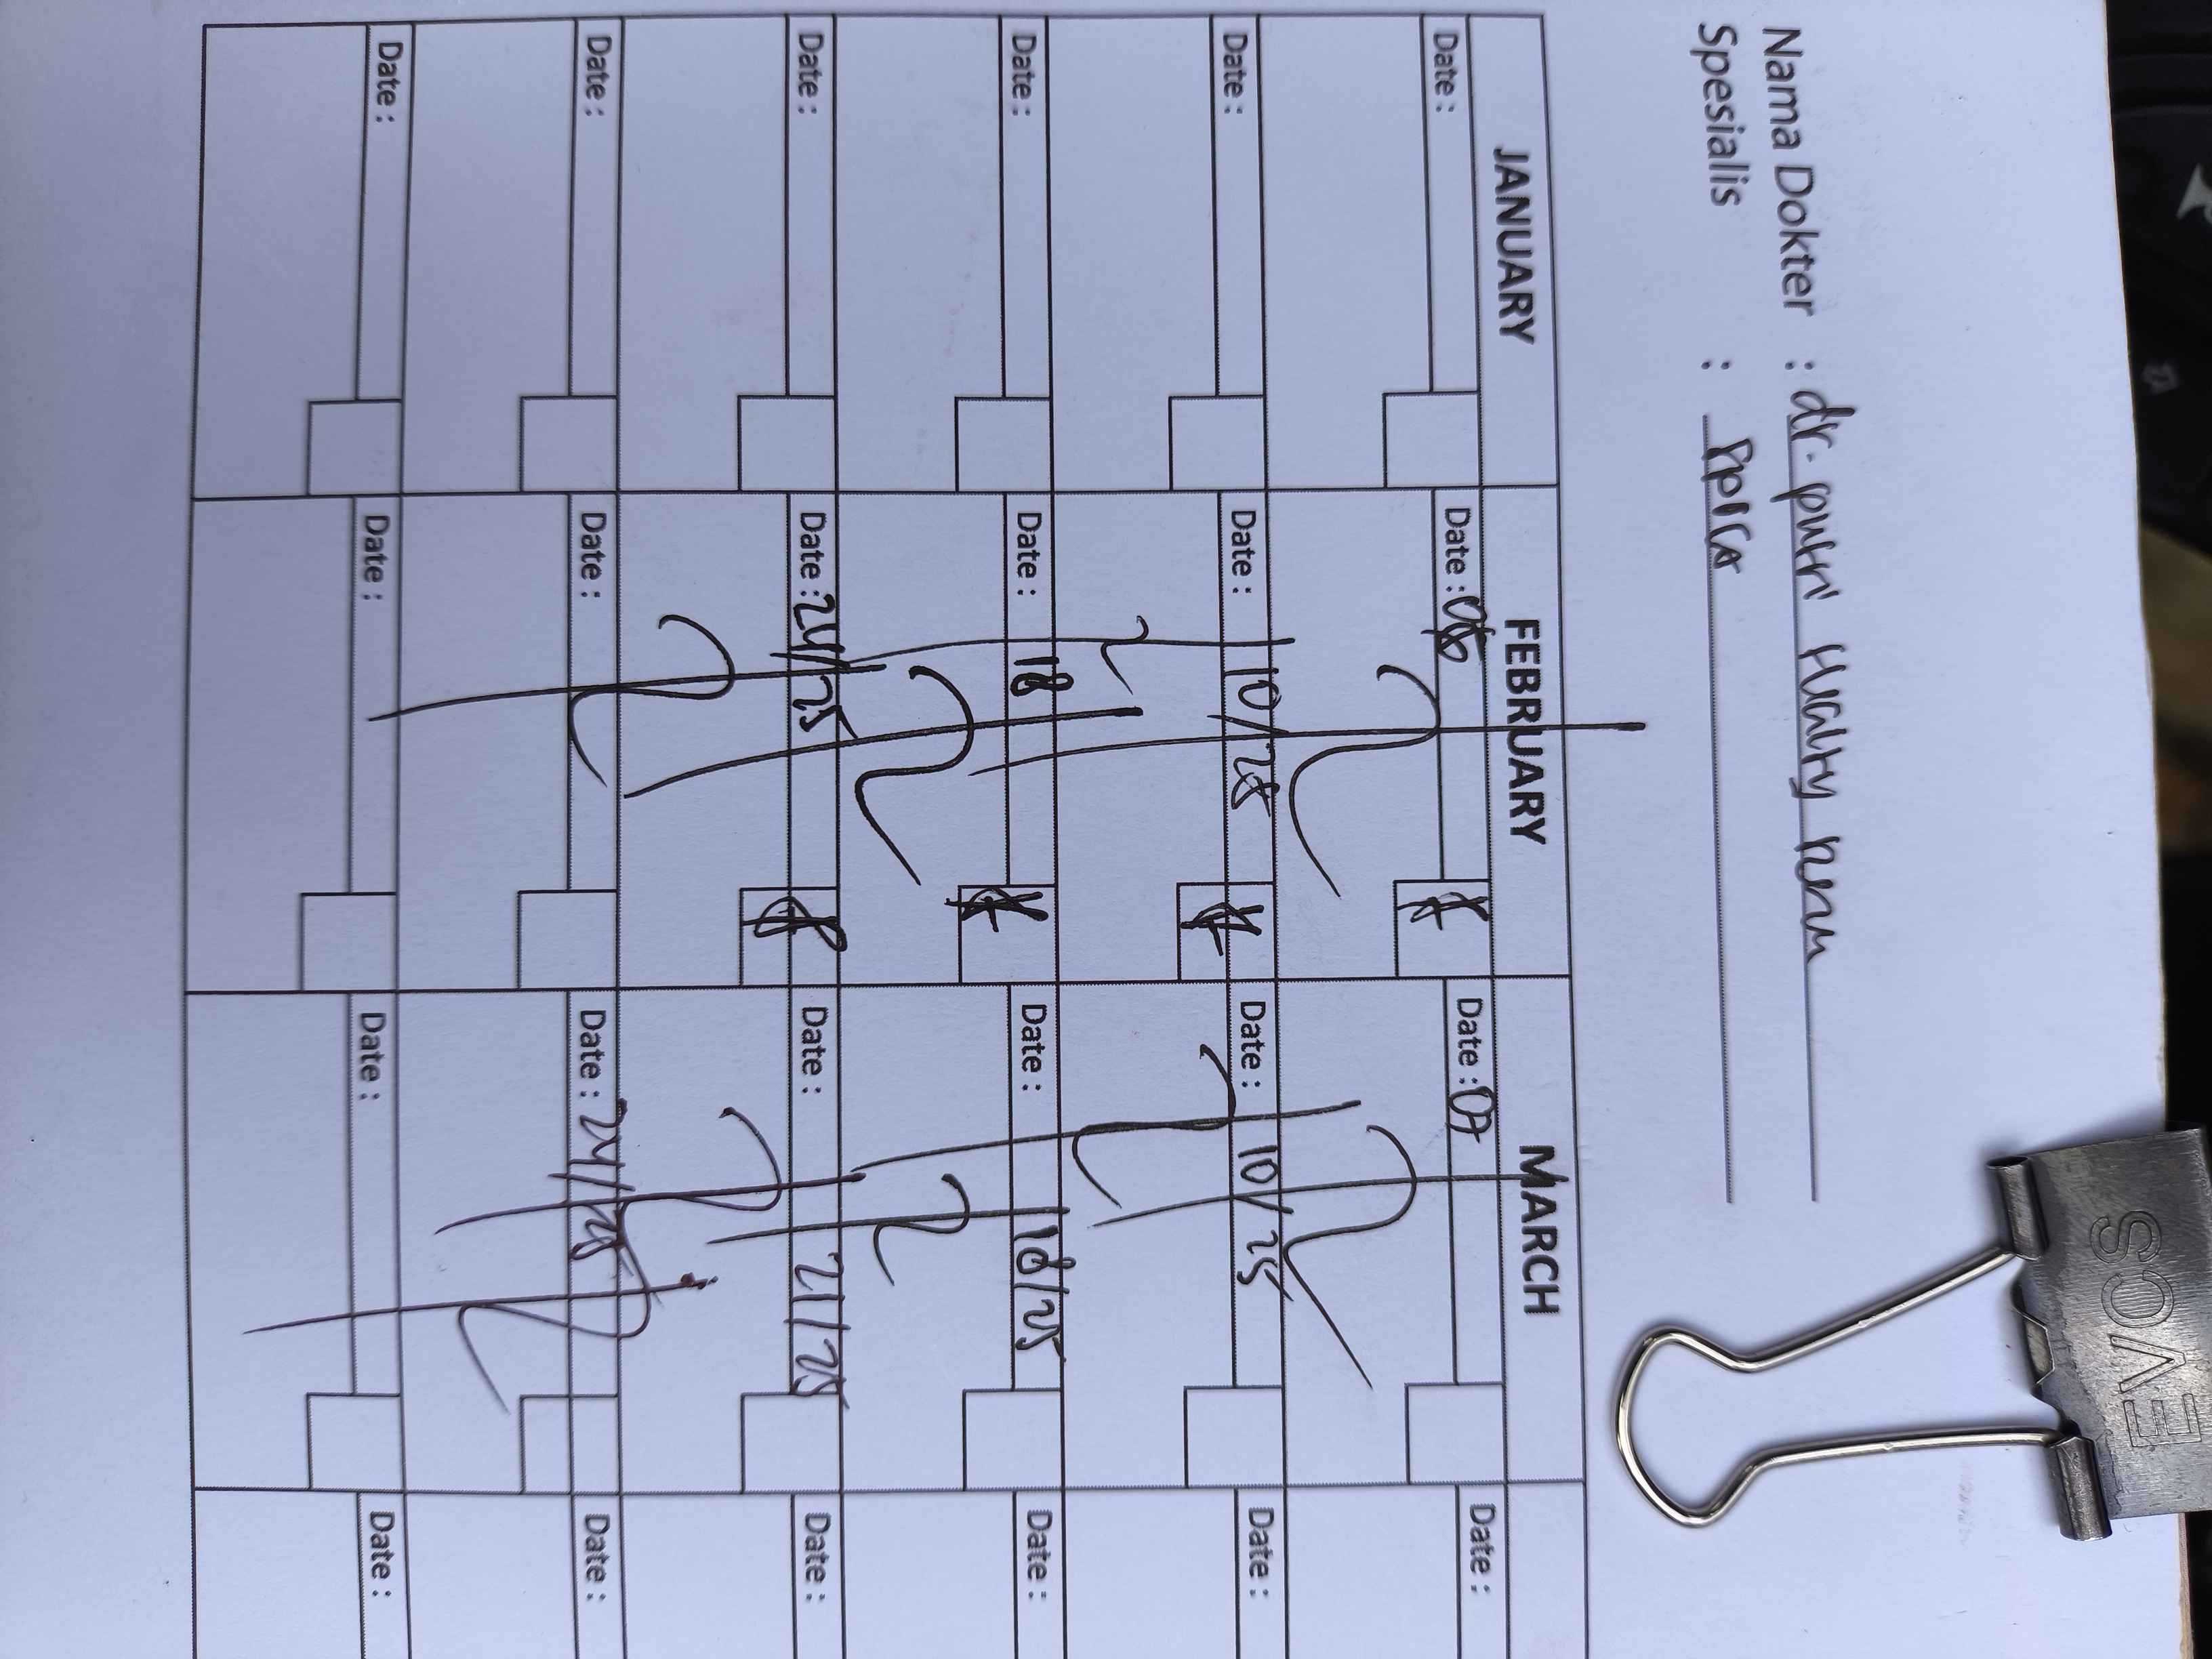 Nama Dokter : dr. putri
Spesialis :
JANUARY FEBRUARY MARCH
Date : Date : Date : 07 Date :
Date : Date : 10/25 Date : 10/25 Date :
Date : Date : 18 Date : 18/25 Date :
Date : Date : 24/25 Date : 21/25 Date :
Date : Date : Date : 24/25 Date :
Date : Date : Date : Date :
EVOS